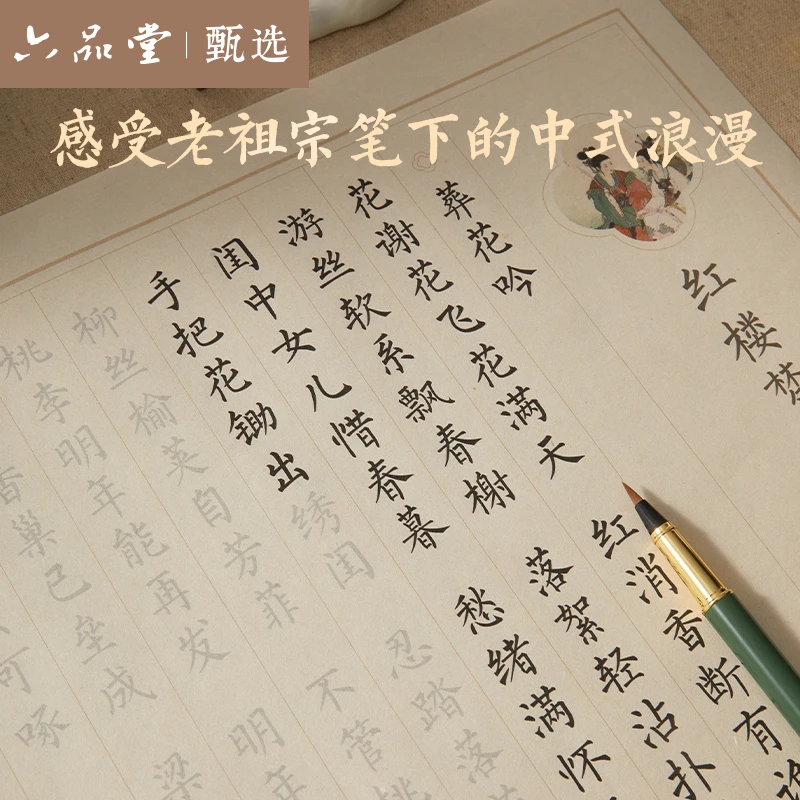 六品堂 | 甄选
感受老祖宗笔下的中式浪漫
红楼梦
葬花吟
花谢花飞花满天 红消香断有
游丝软系飘春榭 落絮轻沾扑
闺中女儿惜春暮 愁绪满怀
手把花锄出绣闺 忍踏落
柳丝榆荚自芳菲 不管桃
桃李明年能再发 明年
香巢已垒成 梁
可啄